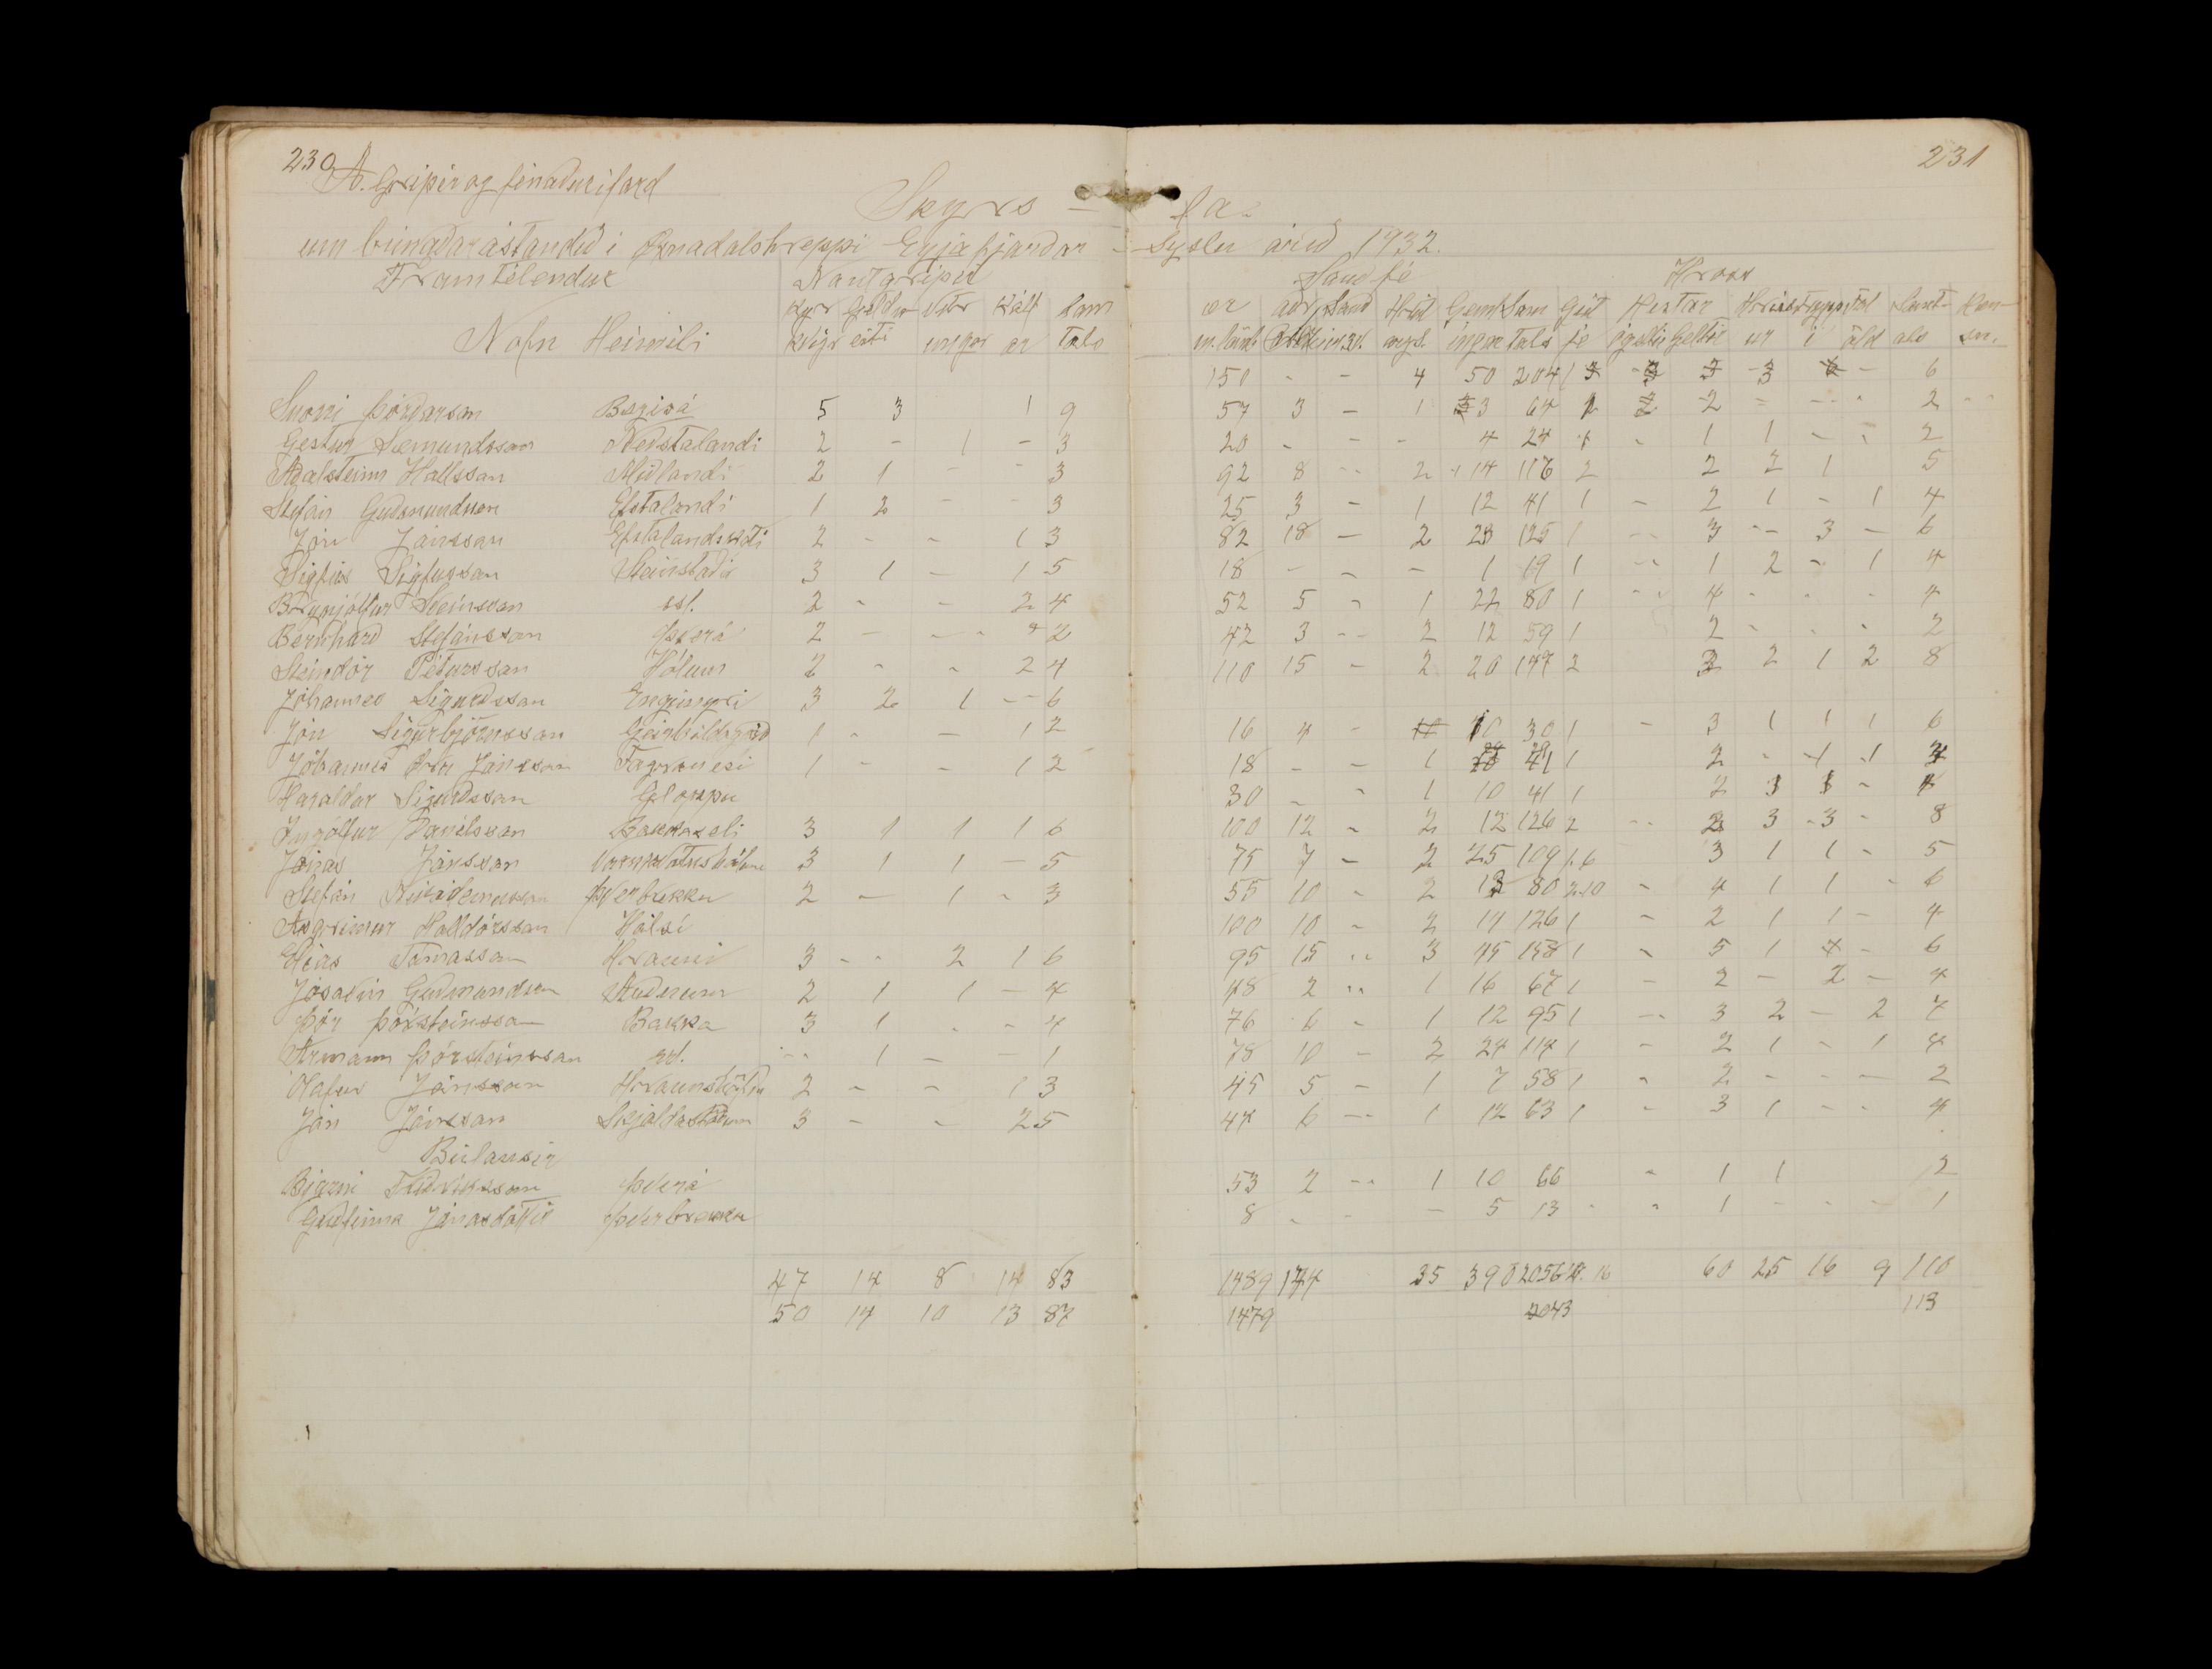 230
A. Gripir og fénaður í fard
231
Skyrs - la.
um búnaðarástandið í Öxnadalshreppi Eyjafjarðar - sýslu árið 1932.
Framtelendur Nautgripir Sauðfé Hross
Kyr Geldn Vetr Kálf Sam ær aðr Sauð Hrút Geml Sam Geit Hestar Hriss tryppi föl Samt- Kan-
Nöfn Heimili kvígr eiti ungar ar tals m. lömb ingar tals fé ógeltir Geltir ur i öld als in.
Snorri Þórðarson Bægisá 5 3 1 9 150 - - 4 50 204 3 6
Gestur Sæmundsson Neðstalandi 2 - 1 - 3 57 3 - 1 3 64 2 2
Aðalsteinn Hallsson Miðlandi 2 1 - - 3 20 - - - 4 24 1 1 - - 2
Stefán Guðmundsson Efstalandi 1 2 - - 3 92 8 - 2 14 116 2 2 2 1 5
Jón Jónsson Efstalandskoti 2 - - 1 3 25 3 - 1 12 41 1 - 2 1 - 1 4
Sigfús Sigfússon Steinstaðir 3 1 - 1 5 82 18 - 2 23 125 1 - 3 - 3 - 6
Brynjólfur Sveinsson sst. 2 - - 2 4 18 - - - 1 19 1 - 1 2 - 1 4
Bernharð Stefánsson Þverá 2 - - - 2 52 5 - 1 22 80 1 - 4 - - - 4
Steindór Pétursson Hólum 2 - - 2 4 42 3 - 2 12 59 1 2 - - - 2
Jóhannes Sigurðsson Engimýri 3 2 1 - 6 110 15 - 2 20 147 2 3 2 1 2 8
Jón Sigurbjörnsson Geirhildargörð 1 - - 1 2 16 4 - 10 30 1 - 3 1 1 1 6
Jóhannes Örn Jónsson Fagranesi 1 - - 1 2 18 - - 1 1 2 - 1 1
Haraldur Sigurðsson Gloppu 30 - - 1 10 41 1 2
Ingólfur Daníelsson Bakkaseli 3 1 1 1 6 100 12 - 2 12 126 2 - 3 - 3 - 8
Jónas Jónsson Varmavatnshólum 3 1 1 - 5 75 7 - 2 25 109 1.6 3 1 1 - 5
Stefán Nikódemusson Þverbrekku 2 - 1 - 3 55 10 - 2 13 80 2.10 - 4 1 1 - 6
Ásgrímur Halldórsson Hálsi 100 10 - 2 14 126 1 - 2 1 1 - 4
Elías Tómasson Hrauni 3 - - 2 1 6 95 15 - 3 45 158 1 - 5 1 - 6
Jósavin Guðmundson Auðnum 2 1 1 - 4 48 2 - 1 16 67 1 - 2 - 2 - 4
Þór Þorsteinsson Bakka 3 1 - - 4 76 6 - 1 12 95 1 - 3 2 - 2 7
Ármann Þorsteinsson sst. - 1 - - 1 78 10 - 2 24 114 1 - 2 1 - 1 4
Ólafur Jónsson Hraunshöfða 2 - - 1 3 45 5 - 1 7 58 1 - 2 - - - 2
Jón Jónsson Skjaldastöðum 3 - - 2 5 44 6 - 1 12 63 1 - 3 1 - - 4
Búlausir
Bjarni Þverá 53 2 - 1 10 66 - 1 1 2
Guðfinna Jónasdóttir Þverbrekku 8 - - - 5 13 - - 1 - - - 1
47 14 8 14 83 1489 144 35 390 2056 16 60 25 16 9 110
50 14 10 13 87 1479 2043 113